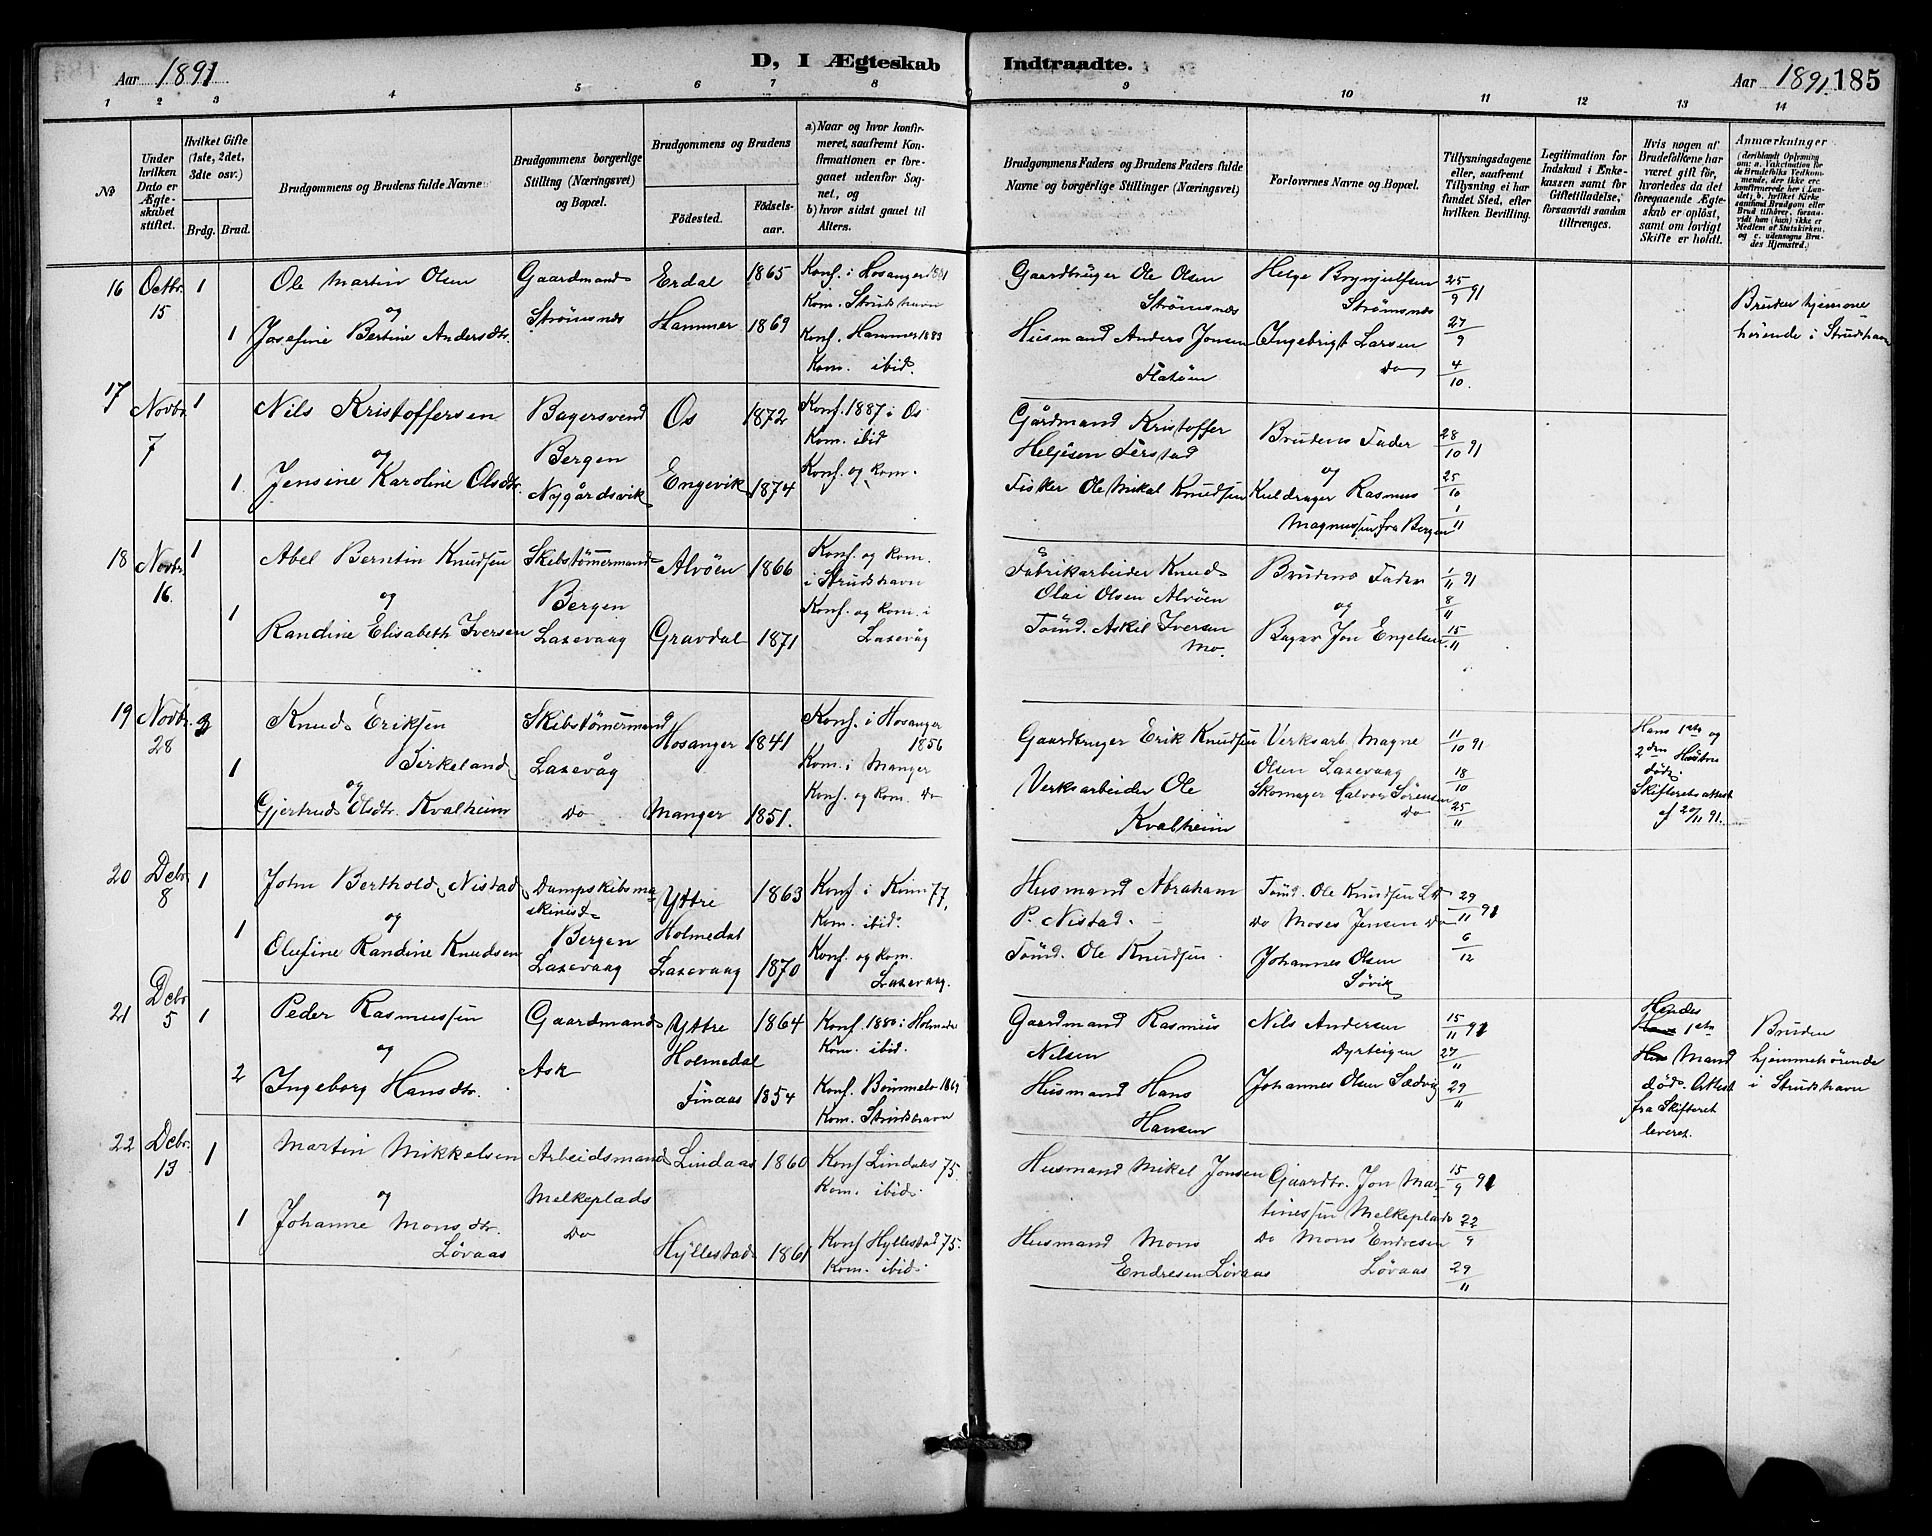 Aar 1891
D, I Ægteskab Indtraadte.
Aar 1891. 185
1 2 3 4 5 6 7 8 9 10 11 12 13 14
No
Under hvilken Dato er Ægteskabet stiftet.
Hvilket Gifte (1ste, 2det, 3dte osv.)
Brdg. Brud.
Brudgommens og Brudens fulde Navne
Brudgommens borgerlige Stilling (Næringsvei) og Bopæl.
Brudgommens og Brudens
Fødested. Fødselsaar.
a) Naar og hvor konfirmeret, saafremt Konfirmationen er foregaaet udenfor Sognet, og
b) hvor sidst gaaet til Alters.
Brudgommens Faders og Brudens Faders fulde Navne og borgerlige Stillinger (Næringsvei)
Forlovernes Navne og Bopæl.
Tillysningsdagene eller, saafremt Tillysning ei har fundet Sted, efter hvilken Bevilling.
Legitimation for Indskud i Enkekassen samt for Giftetilladelse, forsaavidt saadan tiltrænges.
Hvis nogen af Brudefolkene har været gift før, hvorledes da det foregaaende Ægteskab er opløst, samt om lovligt Skifte er holdt.
Anmærkninger (deriblandt Oplysning om: a. Vakcination for de Brudefolks Vedkommende, der ikke ere konfirmerede her i Landet; b. hvilket Kirkesamfund Brudgom eller Brud tilhører, forsaavidt han (hun) ikke er Medlem af Statskirken, og c. udensogns Brudes Hjemsted.)
16 Octbr. 15
1 Ole Martin Olsen
og
1 Josefine Bertine Andersdtr.
Gaardmand
Strømsnes
Erdal 1865
Hammer 1869
Konf. i Hosanger 1881
Kom. Strudshavn
Konf. Hammer 1883
Kom. ibid.
Gaardbruger Ole Olsen
Strømsnes
Husmand Anders Jonsen
Flatøen
Helge Brynjulfsen
Strømsnes
Ingebrigt Larsen
do
25/9 91
27/9
4/10.
Bruden hjemmehørende i Strudshavn
17 Novbr. 7
1 Nils Kristoffersen
og
1. Jensine Karoline Olsdtr.
Bagersvend
Bergen
Nygårdsvik
Os 1872
Engevik 1874
Konf. 1887 i Os
Kom. ibid
Konf. og kom.
Gårdmand Kristoffer
Heljesen Ferstad
Fisker Ole Mikal Knudsen
Brudens Fader
og
Kuldrager Rasmus
Magnussen fra Bergen
28/10 91
25/10
1/11
18 Novbr. 16
1 Abel Berntin Knudsen
og
1 Randine Elisabeth Iversen
Skibstømmermand
Bergen
Laxevaag
Alvøen 1866
Gravdal 1871
Konf. og kom.
i Strudshavn
Konf. og kom. i
Laxevåg
Fabrikarbeider Knud
Olai Olsen Alvøen
Tømd. Askil Iversen
Mo.
Brudens Fader
og
Bager Jon Engelsen
1/11 91
8/11
15/11
19 Novbr. 28
Knud Eriksen
Birkeland
og
1 Gjertrud Olsdtr. Kvalheim
Skibstømermand
Laxevåg
do
Hosanger 1841
Manger 1851.
Konf. i Hosanger
1856
Kom. i Manger
Konf. og kom. do
Gaardbruger Erik Knudsen
Verksarbeider Ole
Kvalheim
Verksarb. Magne
Olsen Laxevaag
Skomager Halvor Sørensen
do
11/10 91
18/10
25/11
Hans 1ste og
2den Hustru
død.
Skifteretsattest
af 20/11 91.
20 Debr. 8
1 John Berthold Nistad
og
1 Olufine Randine Knudsen
Dampskibsma
skinist
Bergen
Laxevaag
Yttre
Holmedal 1863
Laxevaag 1870
Konf. i Kinn 77.
Kom. ibid.
Konf. og kom.
Laxevaag.
Husmand Abraham
P. Nistad.
Tømd. Ole Knudsen.
Tømd. Ole Knudsen
do Moses Jensen do
Johannes Olsen
Søvik
29/11 91
6/12
21 Debr 5
1 Peder Rasmussen
og
2 Ingeborg Hansdtr.
Gaardmand
Ask
Yttre
Holmedal 1864
Finaas 1854
Konf. 1880 i Holmedal
Kom. ibid.
Konf. Bømmelo 1869
Kom. Strudshavn
Gaardmand Rasmus
Nilsen
Husmand Hans
Hansen
Nils Andersen
Dyrteigen
Johannes Olsen Sædvig
15/11 91
27/11
29/11
Hendes
1ste
Mand
død. Attest
fra Skifteret
leveret.
Bruden
hjemmehørende
i Strudshavn
22 Debr. 13
1 Martin Mikkelsen
og
1 Johanne Monsdtr.
Løvaas
Arbeidsmand
Melkeplads
do
Lindaas 1860
Hyllestad 1861
Konf Lindaas 75.
Kom. ibid.
Konf Hyllestad 75.
Kom. ibid.
Husmand Mikel Jonsen
Husmand Mons
Endresen Løvaas
Gaardbr. Jon Mar-
tinessen Melkeplads
do Mons Endresen
Løvaas
15/9 91
22/9
29/11